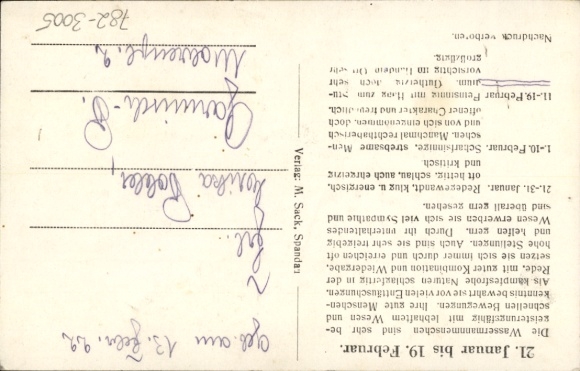 21. Januar bis 19. Februar.
Die Wassermannmenschen sind sehr be-
geisterungsfähig mit lebhaftem Wesen und
schnellen Bewegungen. Ihre gute Menschen-
kenntnis bewahrt sie vor vielen Enttäuschungen.
Als kampfesfrohe Naturen schlagfertig in der
Rede, mit guter Kombination und Wiedergabe,
setzen sie sich immer durch und erreichen oft
hohe Stellungen. Auch sind sie sehr freigebig
und helfen gern. Durch ihr unterhaltendes
Wesen erwerben sie sich viel Sympathie und
sind überall gern gesehen.
21.-31. Januar. Redegewandt, klug u. energisch,
oft hitzig, schlau, auch ehrgeizig
und kritisch
1.-10. Februar. Scharfsinnige, strebsame Men-
schen. Manchmal rechthaberisch
und von sich eingenommen, doch
offener Charakter und freundlich.
11.-19. Februar Feinsinnig mit Hang zum Stu-
dium. Gutherzig doch sehr
vorsichtig im Handeln Oft sehr
großzügig.
Nachdruck verboten.
Verlag: M. Sack, Spandau
geb. am 13. Febr. 22
Frl.
782-3005